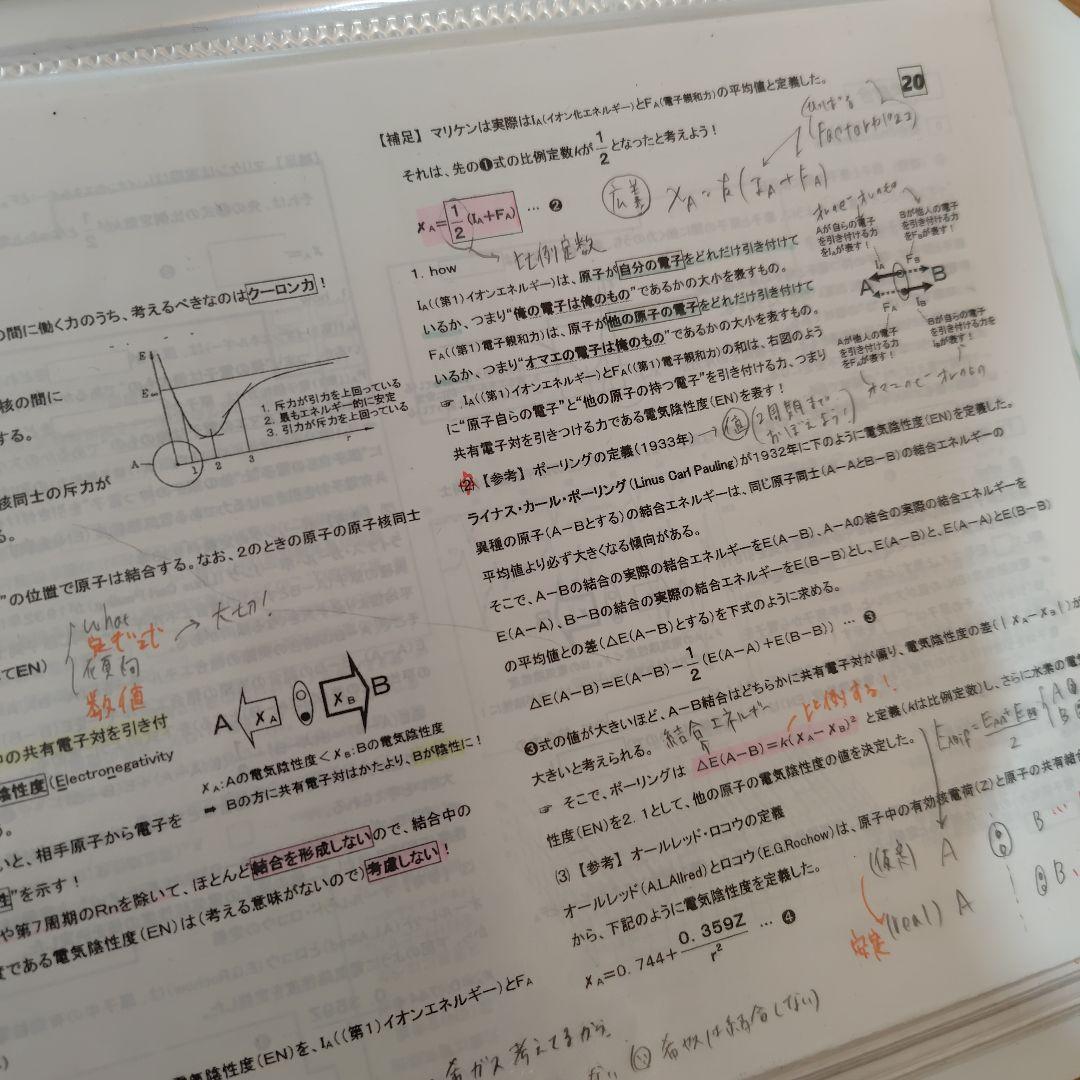 の間に働く力のうち、考えるべきなのはクーロン力！
核の間に
する。
E
E∞
1. 斥力が引力を上回っている
2. 最もエネルギー的に安定
3. 引力が斥力を上回っている
A
1 2 3
r
核同士の斥力が
る。
"の位置で原子は結合する。なお、2のときの原子の原子核同士
what
定ギ式 → 大切！
傾向
数値
てEN)
中の共有電子対を引き付
陰性度(Electronegativity
A XA XB B
XA:Aの電気陰性度<XB:Bの電気陰性度
➡ Bの方に共有電子対はかたより、Bが陰性に！
いと、相手原子から電子を
性"を示す！
や第7周期のRnを除いて、ほとんど結合を形成しないので、結合中の
度である電気陰性度(EN)は(考える意味がないので)考慮しない！
電気陰性度(EN)を、IA((第1)イオンエネルギー)とFA
20
【補足】マリケンは実際はIA(イオン化エネルギー)とFA(電子親和力)の平均値と定義した。
それは、先の❶式の比例定数kが1/2となったと考えよう！
XA=1/2(IA+FA) … ❷
広義 XA=k(IA+FA)
比例定数
1. how
IA((第1)イオンエネルギー)は、原子が自分の電子をどれだけ引き付けて
いるか、つまり"俺の電子は俺のもの"であるかの大小を表すもの。
FA((第1)電子親和力)は、原子が他の原子の電子をどれだけ引き付けて
いるか、つまり"オマエの電子は俺のもの"であるかの大小を表すもの。
☞ IA((第1)イオンエネルギー)とFA((第1)電子親和力)の和は、右図のよう
に"原子自らの電子"と"他の原子の持つ電子"を引き付ける力、つまり
共有電子対を引きつける力である電気陰性度(EN)を表す！
Aが自らの電子
を引き付ける力
をIAが表す！
Bが他人の電子
を引き付ける力
をFBが表す！
IA FB
A B
FA IB
Aが他人の電子
を引き付ける力
をFAが表す！
Bが自らの電子
を引き付ける力を
IBが表す！
→ 値 (2周期まで
おぼえよう！)
(2)【参考】ポーリングの定義(1933年)
ライナス・カール・ポーリング(Linus Carl Pauling)が1932年に下のように電気陰性度(EN)を定義した。
異種の原子(A−Bとする)の結合エネルギーは、同じ原子同士(A−AとB−B)の結合エネルギーの
平均値より必ず大きくなる傾向がある。
そこで、A−Bの結合の実際の結合エネルギーをE(A−B)、A−Aの結合の実際の結合エネルギーを
E(A−A)、B−Bの結合の実際の結合エネルギーをE(B−B)とし、E(A−B)と、E(A−A)とE(B−B)
の平均値との差(△E(A−B)とする)を下式のように求める。
△E(A−B)=E(A−B)−1/2(E(A−A)+E(B−B)) … ❸
❸式の値が大きいほど、A−B結合はどちらかに共有電子対が偏り、電気陰性度の差(|XA−XB|)が
大きいと考えられる。 結合エネルギー 比例する！
☞ そこで、ポーリングは △E(A−B)=k(XA−XB)² と定義(kは比例定数)し、さらに水素の電気
性度(EN)を2.1として、他の原子の電気陰性度の値を決定した。
(3)【参考】オールレッド・ロコウの定義
オールレッド(A.L.Allred)とロコウ(E.G.Rochow)は、原子中の有効核電荷(Z)と原子の共有結合
から、下記のように電気陰性度を定義した。
XA=0.744+0.359Z/r² … ❹
(仮定) A B
(real) A B
安定
希ガス考えてるから
希ガスは結合しない)